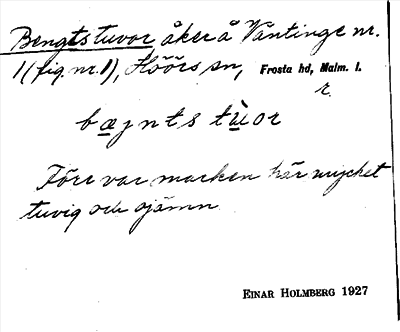 Bengtstuvor åker å Väntinge nr.
1 (fig. nr. 1), Höörs sn, Frosta hd, Malm. l.
r.
bæjnts tùor
Förr var marken här mycket
tuvig och ojämn.
EINAR HOLMBERG 1927